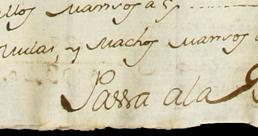 llos Mansos a S
Mulas, y Machos Mansos a
Passa a la